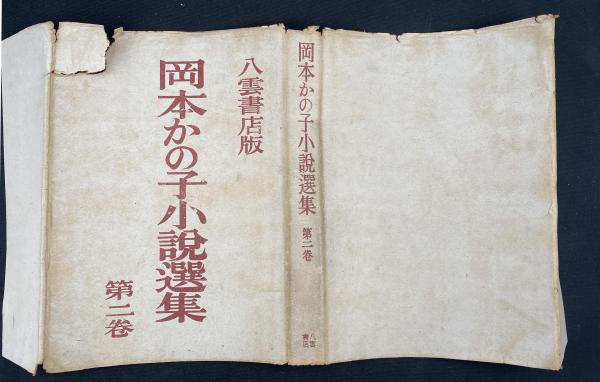 八雲書店版
岡本かの子小說選集
第二卷
岡本かの子小說選集
第二卷
八雲
書店